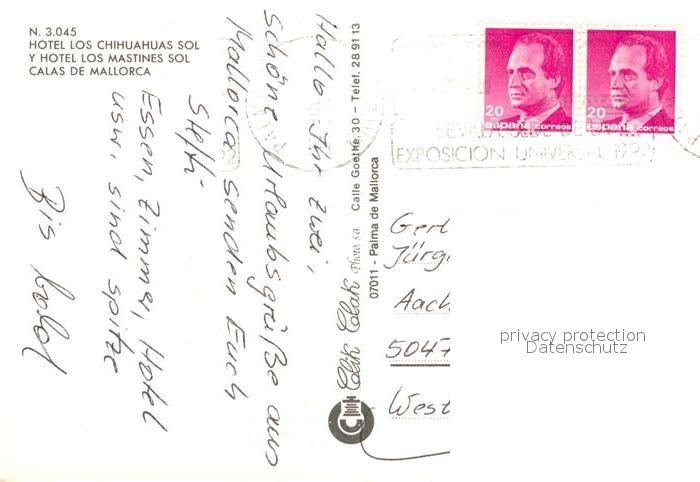 N. 3.045
HOTEL LOS CHIHUAHUAS SOL
Y HOTEL LOS MASTINES SOL
CALAS DE MALLORCA
Hallo Ihr zwei,
schöne Urlaubsgrüße aus
Mallorca senden Euch
Steffi
Essen, Zimmer, Hotel
usw. sind spitze
Bis bald
Clak Clak Photo, s.a. Calle Goethe, 30 - Telef. 28 91 13
07011 - Palma de Mallorca
20 20
españa correos españa correos
EXPOSICION UNIVERSAL 1992
Gert
Jürg
Aach
5047
West
privacy protection
Datenschutz